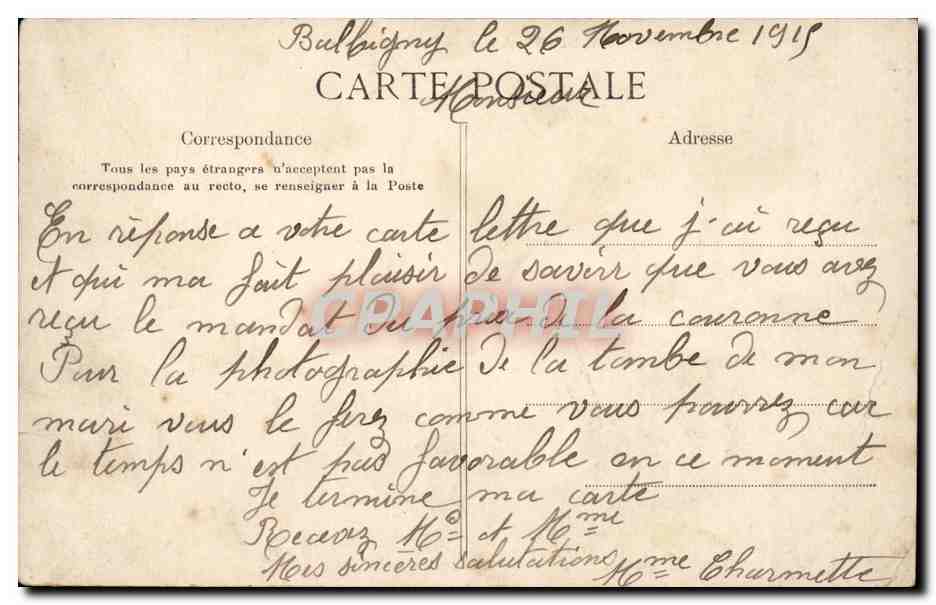 Balbigny le 26 Novembre 1915
CARTE POSTALE
Monsieur
Correspondance
Adresse
Tous les pays étrangers n'acceptent pas la
correspondance au recto, se renseigner à la Poste
En réponse a votre carte lettre que j'ai reçu
et qui ma fait plaisir de savoir que vous avez
reçu le mandat du prix de la couronne
CPAPHIL
Pour la photographie de la tombe de mon
mari vous le ferez comme vous pourrez car
le temps n'est pas favorable en ce moment
Je termine ma carte
Recevez Mr et Mme
Mes sincères salutations Mme Charmette